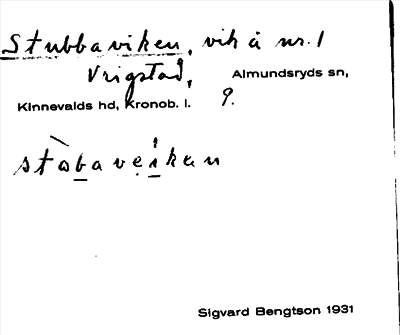 Stubbaviken, vik å nr. 1
Vrigstad, Almundsryds sn,
Kinnevalds hd, Kronob. l. 9.
Sigvard Bengtson 1931